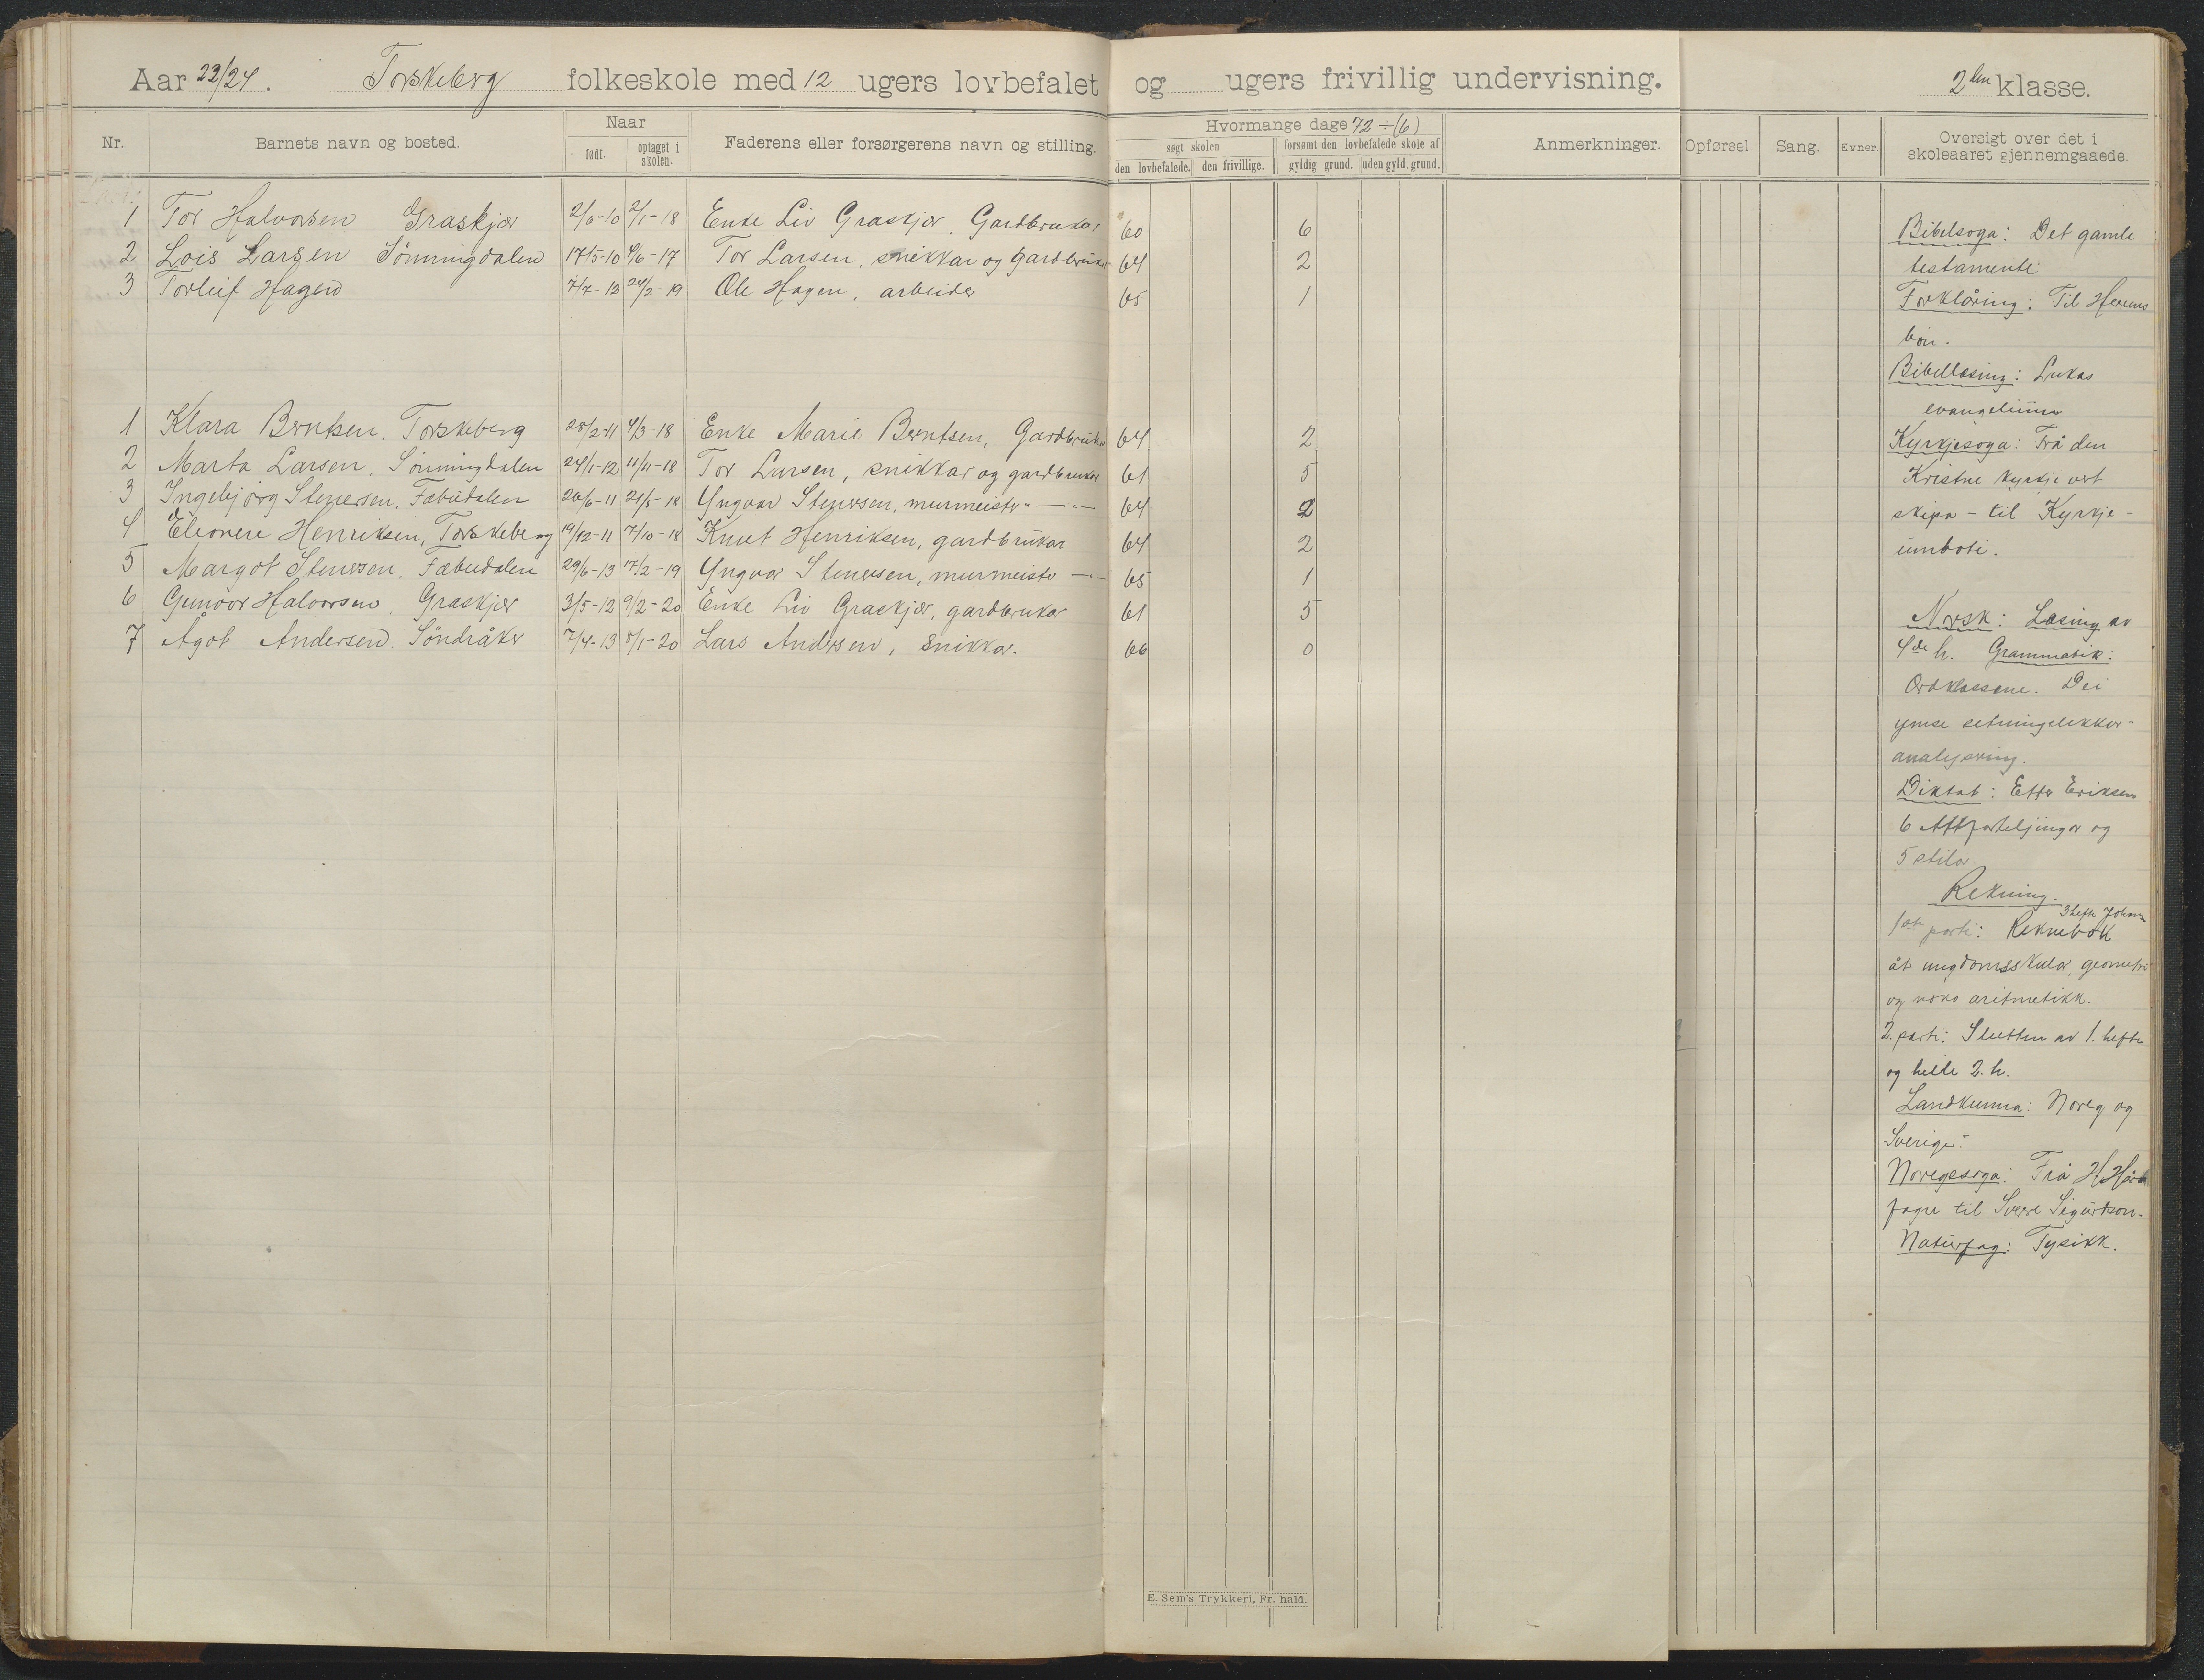 Aar 23/24. Torskeberg folkeskole med 12 ugers lovbefalet og ugers frivillig undervisning. 2den klasse.
Nr. Barnets navn og bosted. Naar født. optaget i skolen. Faderens eller forsørgerens navn og stilling. Hvormange dage 72 ÷ (6) søgt skolen den lovbefalede. den frivillige. forsømt den lovbefalede skole af gyldig grund. uden gyld. grund. Anmerkninger. Opførsel Sang. Evner. Oversigt over det i skoleaaret gjennemgaaede.
1 Tor Halvorsen Graskjær 2/6-10 2/1-18 Enke Liv Graskjær, Gardbrukar 60 6
2 Lois Larsen Sönningdalen 17/5-10 4/6-17 Tor Larsen, snikkar og gardbrukar 64 2
3 Torleif Hagen 7/7-12 24/2-19 Ole Hagen, arbeider 65 1
1 Klara Berntsen, Torskeberg 28/2-11 4/3-18 Enke Marie Berntsen, Gardbrukar 64 2
2 Marta Larsen, Sönningdalen 24/1-12 11/11-18 Tor Larsen, snikkar og gardbrukar 61 5
3 Ingebjörg Stenersen, Fæbudalen 20/6-11 21/5-18 Yngvar Stenersen, murmeister -"- 64 2
4 Eleonere Henriksen, Torskeberg 19/12-11 7/10-18 Knut Henriksen, gardbrukar 64 2
5 Margot Stenersen, Fæbudalen 29/6-13 17/2-19 Yngvar Stenersen, murmeister -"- 65 1
6 Gunvor Halvorsen, Graskjær 3/5-12 9/2-20 Enke Liv Graskjær, gardbrukar 61 5
7 Ågot Andersen. Söndråker 7/4-13 8/1-20 Lars Andersen, Snikkar. 66 0
Bibelsoga: Det gamle
testamente
Forklåring: Til Herrens
bön.
Bibellesing: Lukas
evangelium
Kyrkjesoga: Frå den
Kristne kyrkje vert
skipa - til Kyrkje-
umboti.
Norsk: Lesing av
4de h. Grammatik:
Ordklassene. Dei
ymse setningslekkar-
analysering.
Diktat: Etter Eriksen
6 Attforteljingar og
5 stilar.
Rekning.
3 hefte Johnsen
1ste parti: Reknebok
åt ungdomsskular, geometri
og noko aritmetikk.
2. parti: Slutten av 1. hefte
og heile 2. h.
Landkunna: Noreg og
Sverige.
Noregssoga: Frå H. Hår-
fagre til Sverre Sigurdson.
Naturfag: Fysikk.
E. Sem's Trykkeri, Fr. hald.